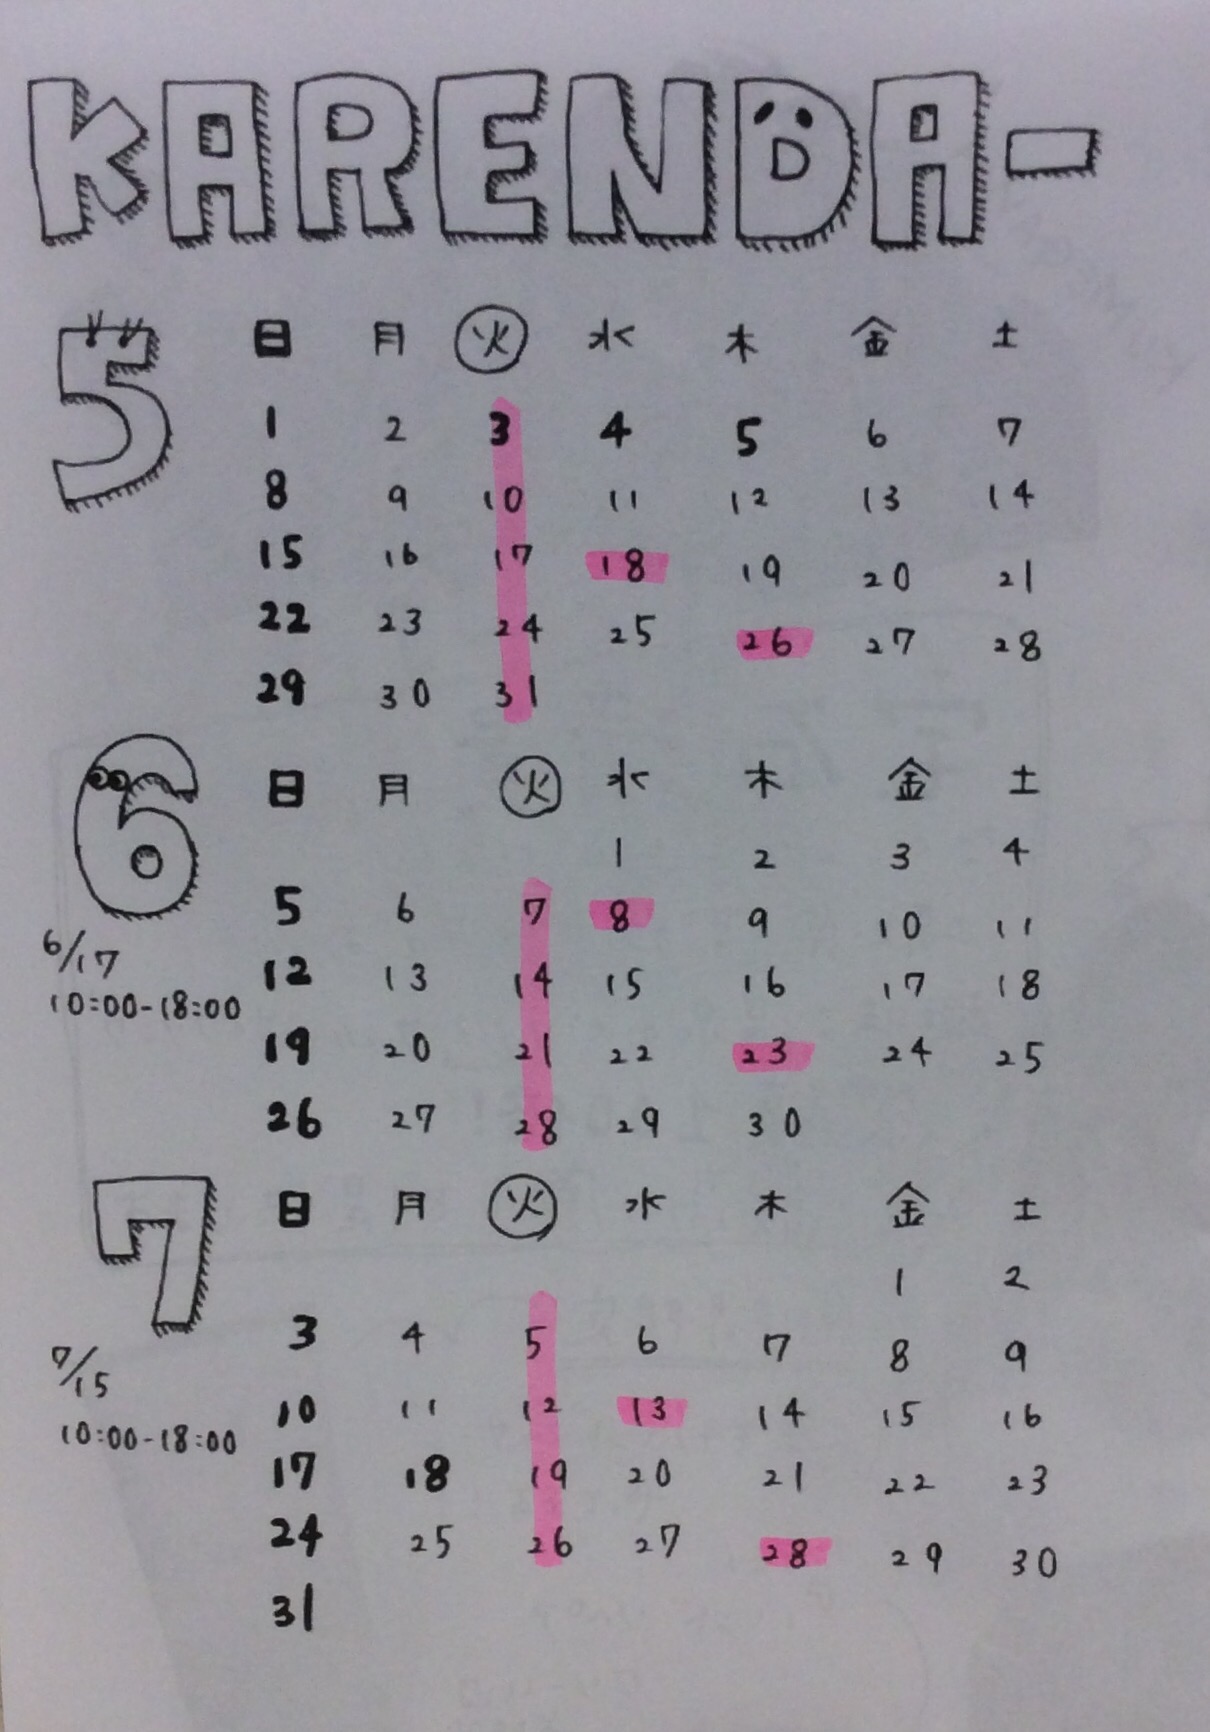 KARENDA-
5
日 月 火 水 木 金 土
1 2 3 4 5 6 7
8 9 10 11 12 13 14
15 16 17 18 19 20 21
22 23 24 25 26 27 28
29 30 31
6
日 月 火 水 木 金 土
1 2 3 4
5 6 7 8 9 10 11
6/17
10:00-18:00
12 13 14 15 16 17 18
19 20 21 22 23 24 25
26 27 28 29 30
7
日 月 火 水 木 金 土
1 2
3 4 5 6 7 8 9
7/15
10:00-18:00
10 11 12 13 14 15 16
17 18 19 20 21 22 23
24 25 26 27 28 29 30
31